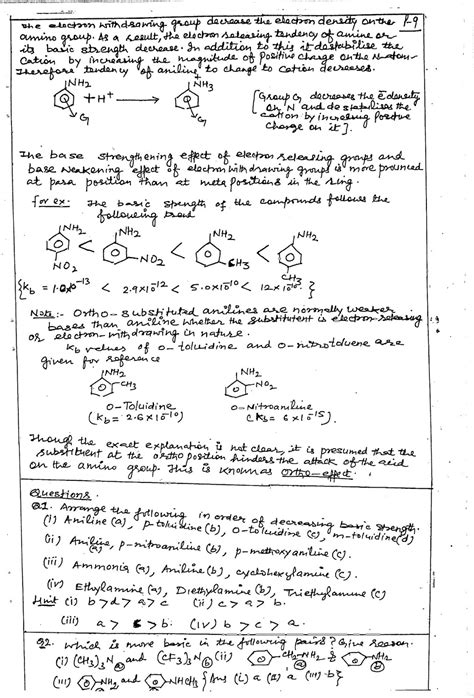 The electron withdrawing group decrease the electron density on the P-9
amino group. As a result, the electron releasing tendency of amine or
its basic strength decrease. In addition to this it destabilise the
Cation by increasing the magnitude of Positive charge on the N-atom-
Therefore tendency of aniline to change to Cation decreases.
NH2 + H+ → +NH3
G G
[Group G decreases the e density
on N and destabilises the
cation by increasing Positive
Charge on it].
The base strengthening effect of electron releasing groups and
base weakening effect of electron withdrawing groups is more prounced
at para position than at meta positions in the ring.
for ex: The basic strength of the compounds follows the
following trend
NH2 < NH2 < NH2 < NH2
NO2 NO2 CH3 CH3
{Kb = 1.0x10-13 < 2.9x10-12 < 5.0x10-10 < 12x10-10 }
Note:- Ortho-substituted anilines are normally weaker
bases than aniline whether the substitutent is electron-releasing
or electron-withdrawing in nature.
Kb values of o-toluidine and o-nitrotoluene are
given for reference
NH2 CH3 NH2 NO2
O-Toluidine O-Nitroaniline
(Kb = 2.6x10-10) (Kb = 6x10-15).
Though the exact explanation is not clear, it is presumed that the
substituent at the ortho position hinders the attack of the acid
on the amino group. This is known as ortho-effect.
Questions.
Q1. Arrange the following in order of decreasing basic strength
(i) Aniline (a), p-toluidine (b), o-toluidine (c), m-toluidine(d)
(ii) Aniline (a), p-nitroaniline (b), p-methoxyaniline (c).
(iii) Ammonia (a), Aniline (b), cyclohexylamine (c).
(iv) Ethylamine (a), Diethylamine (b), Triethylamine (c)
Hint (i) b > d > a > c (ii) c > a > b.
(iii) a > c > b. (iv) b > c > a.
Q2. which is more basic in the following pairs? Give reason.
(i) (CH3)3N (a) and (CF3)3N (b) (ii) CH2-NH2 & NH2 (b)
(iii) NH2 and NHCH3 {Ans (i) a (ii) a (iii) b}